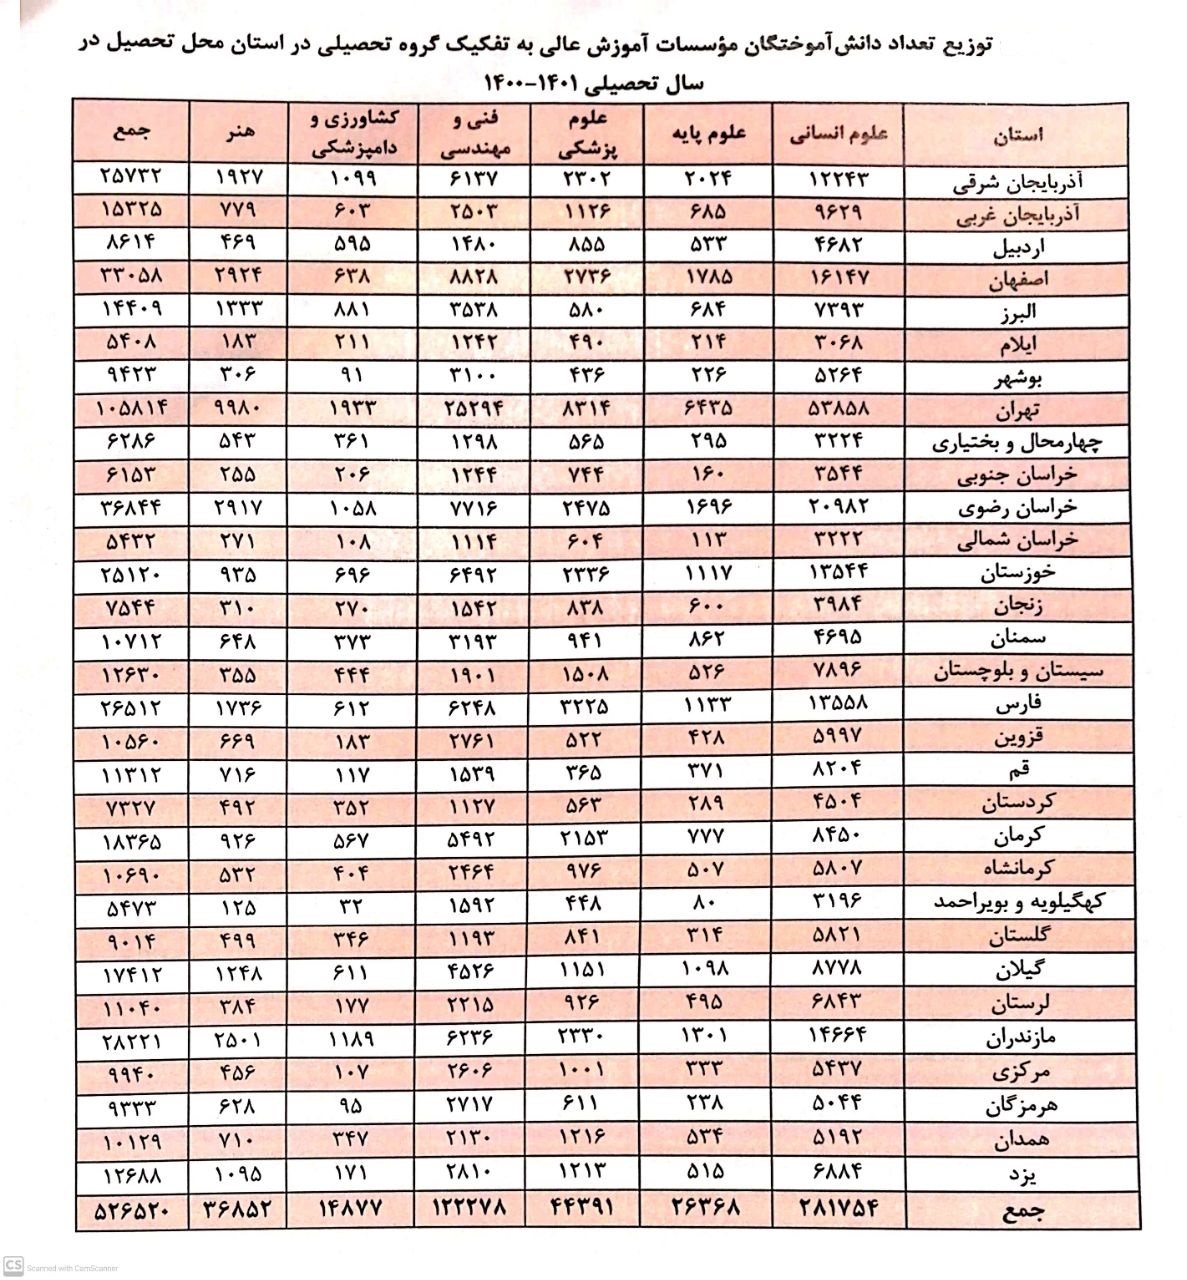 توزیع تعداد دانش‌آموختگان مؤسسات آموزش عالی به تفکیک گروه تحصیلی در استان محل تحصیل در
سال تحصیلی ۱۴۰۱-۱۴۰۰
استان علوم انسانی علوم پایه علوم پزشکی فنی و مهندسی کشاورزی و دامپزشکی هنر جمع
آذربایجان شرقی ۱۲۲۴۳ ۲۰۲۴ ۲۳۰۲ ۶۱۳۷ ۱۰۹۹ ۱۹۲۷ ۲۵۷۳۲
آذربایجان غربی ۹۶۲۹ ۶۸۵ ۱۱۲۶ ۲۵۰۳ ۶۰۳ ۷۷۹ ۱۵۳۲۵
اردبیل ۴۶۸۲ ۵۳۳ ۸۵۵ ۱۴۸۰ ۵۹۵ ۴۶۹ ۸۶۱۴
اصفهان ۱۶۱۴۷ ۱۷۸۵ ۲۷۳۶ ۸۸۲۸ ۶۳۸ ۲۹۲۴ ۳۳۰۵۸
البرز ۷۳۹۳ ۶۸۴ ۵۸۰ ۳۵۳۸ ۸۸۱ ۱۳۳۳ ۱۴۴۰۹
ایلام ۳۰۶۸ ۲۱۴ ۴۹۰ ۱۲۴۲ ۲۱۱ ۱۸۳ ۵۴۰۸
بوشهر ۵۲۶۴ ۲۲۶ ۴۳۶ ۳۱۰۰ ۹۱ ۳۰۶ ۹۴۲۳
تهران ۵۳۸۵۸ ۶۴۳۵ ۸۳۱۴ ۲۵۲۹۴ ۱۹۳۳ ۹۹۸۰ ۱۰۵۸۱۴
چهارمحال و بختیاری ۳۲۲۴ ۲۹۵ ۵۶۵ ۱۲۹۸ ۳۶۱ ۵۴۳ ۶۲۸۶
خراسان جنوبی ۳۵۴۴ ۱۶۰ ۷۴۴ ۱۲۴۴ ۲۰۶ ۲۵۵ ۶۱۵۳
خراسان رضوی ۲۰۹۸۲ ۱۶۹۶ ۲۴۷۵ ۷۷۱۶ ۱۰۵۸ ۲۹۱۷ ۳۶۸۴۴
خراسان شمالی ۳۲۲۲ ۱۱۳ ۶۰۴ ۱۱۱۴ ۱۰۸ ۲۷۱ ۵۴۳۲
خوزستان ۱۳۵۴۴ ۱۱۱۷ ۲۳۳۶ ۶۴۹۲ ۶۹۶ ۹۳۵ ۲۵۱۲۰
زنجان ۳۹۸۴ ۶۰۰ ۸۳۸ ۱۵۴۲ ۲۷۰ ۳۱۰ ۷۵۴۴
سمنان ۴۶۹۵ ۸۶۲ ۹۴۱ ۳۱۹۳ ۳۷۳ ۶۴۸ ۱۰۷۱۲
سیستان و بلوچستان ۷۸۹۶ ۵۲۶ ۱۵۰۸ ۱۹۰۱ ۴۴۴ ۳۵۵ ۱۲۶۳۰
فارس ۱۳۵۵۸ ۱۱۳۳ ۳۲۲۵ ۶۲۴۸ ۶۱۲ ۱۷۳۶ ۲۶۵۱۲
قزوین ۵۹۹۷ ۴۲۸ ۵۲۲ ۲۷۶۱ ۱۸۳ ۶۶۹ ۱۰۵۶۰
قم ۸۲۰۴ ۳۷۱ ۳۶۵ ۱۵۳۹ ۱۱۷ ۷۱۶ ۱۱۳۱۲
کردستان ۴۵۰۴ ۲۸۹ ۵۶۳ ۱۱۲۷ ۳۵۲ ۴۹۲ ۷۳۲۷
کرمان ۸۴۵۰ ۷۷۷ ۲۱۵۳ ۵۴۹۲ ۵۶۷ ۹۲۶ ۱۸۳۶۵
کرمانشاه ۵۸۰۷ ۵۰۷ ۹۷۶ ۲۴۶۴ ۴۰۴ ۵۳۲ ۱۰۶۹۰
کهگیلویه و بویراحمد ۳۱۹۶ ۸۰ ۴۴۸ ۱۵۹۲ ۳۲ ۱۲۵ ۵۴۷۳
گلستان ۵۸۲۱ ۳۱۴ ۸۴۱ ۱۱۹۳ ۳۴۶ ۴۹۹ ۹۰۱۴
گیلان ۸۷۷۸ ۱۰۹۸ ۱۱۵۱ ۴۵۲۶ ۶۱۱ ۱۲۴۸ ۱۷۴۱۲
لرستان ۶۸۴۳ ۴۹۵ ۹۲۶ ۲۲۱۵ ۱۷۷ ۳۸۴ ۱۱۰۴۰
مازندران ۱۴۶۶۴ ۱۳۰۱ ۲۳۳۰ ۶۲۳۶ ۱۱۸۹ ۲۵۰۱ ۲۸۲۲۱
مرکزی ۵۴۳۷ ۳۳۳ ۱۰۰۱ ۲۶۰۶ ۱۰۷ ۴۵۶ ۹۹۴۰
هرمزگان ۵۰۴۴ ۲۳۸ ۶۱۱ ۲۷۱۷ ۹۵ ۶۲۸ ۹۳۳۳
همدان ۵۱۹۲ ۵۳۴ ۱۲۱۶ ۲۱۳۰ ۳۴۷ ۷۱۰ ۱۰۱۲۹
یزد ۶۸۸۴ ۵۱۵ ۱۲۱۳ ۲۸۱۰ ۱۷۱ ۱۰۹۵ ۱۲۶۸۸
جمع ۲۸۱۷۵۴ ۲۶۳۶۸ ۴۴۳۹۱ ۱۲۲۲۷۸ ۱۴۸۷۷ ۳۶۸۵۲ ۵۲۶۵۲۰
CS Scanned with CamScanner